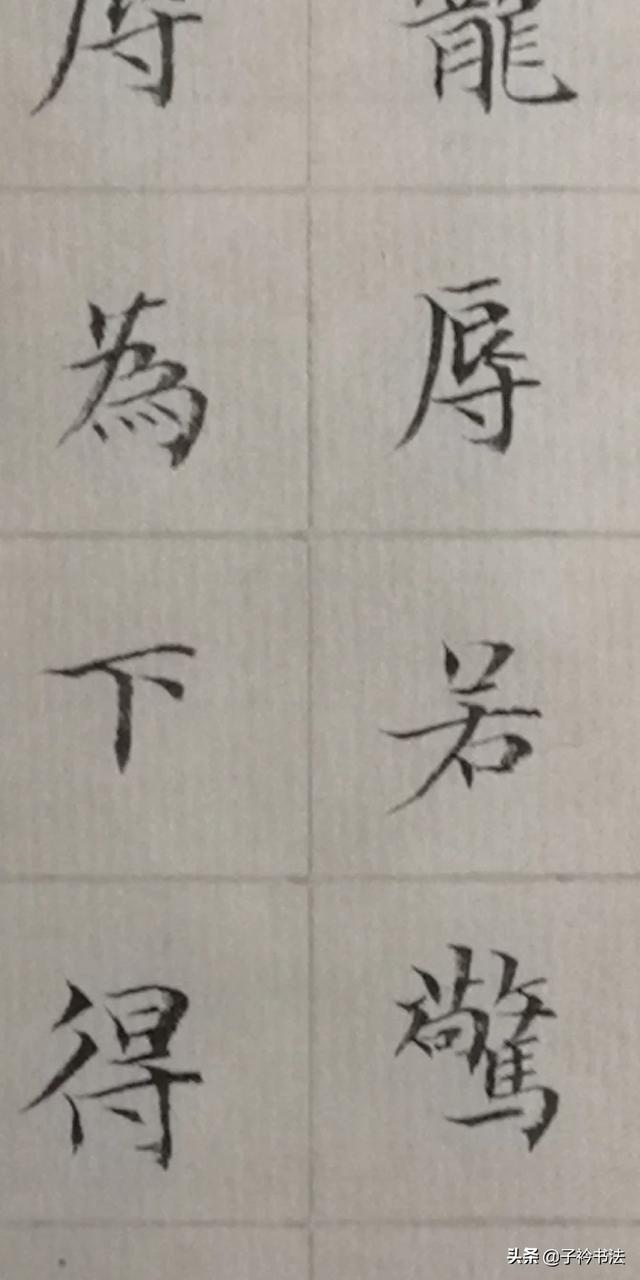 寵辱若驚
辱為下得
头条 @子衿书法